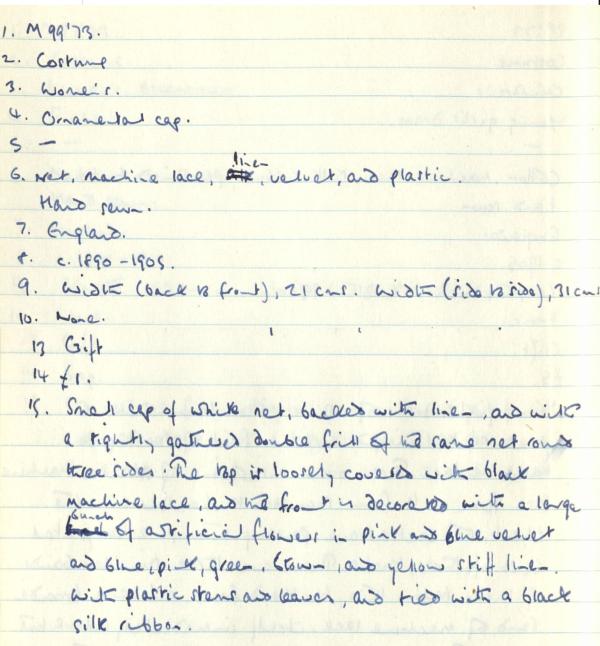 1. M99'73.
2. Costume
3. Women's.
4. Ornamental cap.
5 —
6. Net, machine lace, linen, velvet, and plastic.
Hand sewn.
7. England.
8. c. 1890 - 1905.
9. Width (back to front), 21 cms. Width (side to side), 31 cms
10. None.
13 Gift
14 £1.
15. Small cap of white net, backed with linen, and with
a tightly gathered double frill of the same net round
three sides. The top is loosely covered with black
machine lace, and the front is decorated with a large
bunch of artificial flowers in pink and blue velvet
and blue, pink, green, brown, and yellow stiff linen.
With plastic stems and leaves, and tied with a black
silk ribbon.